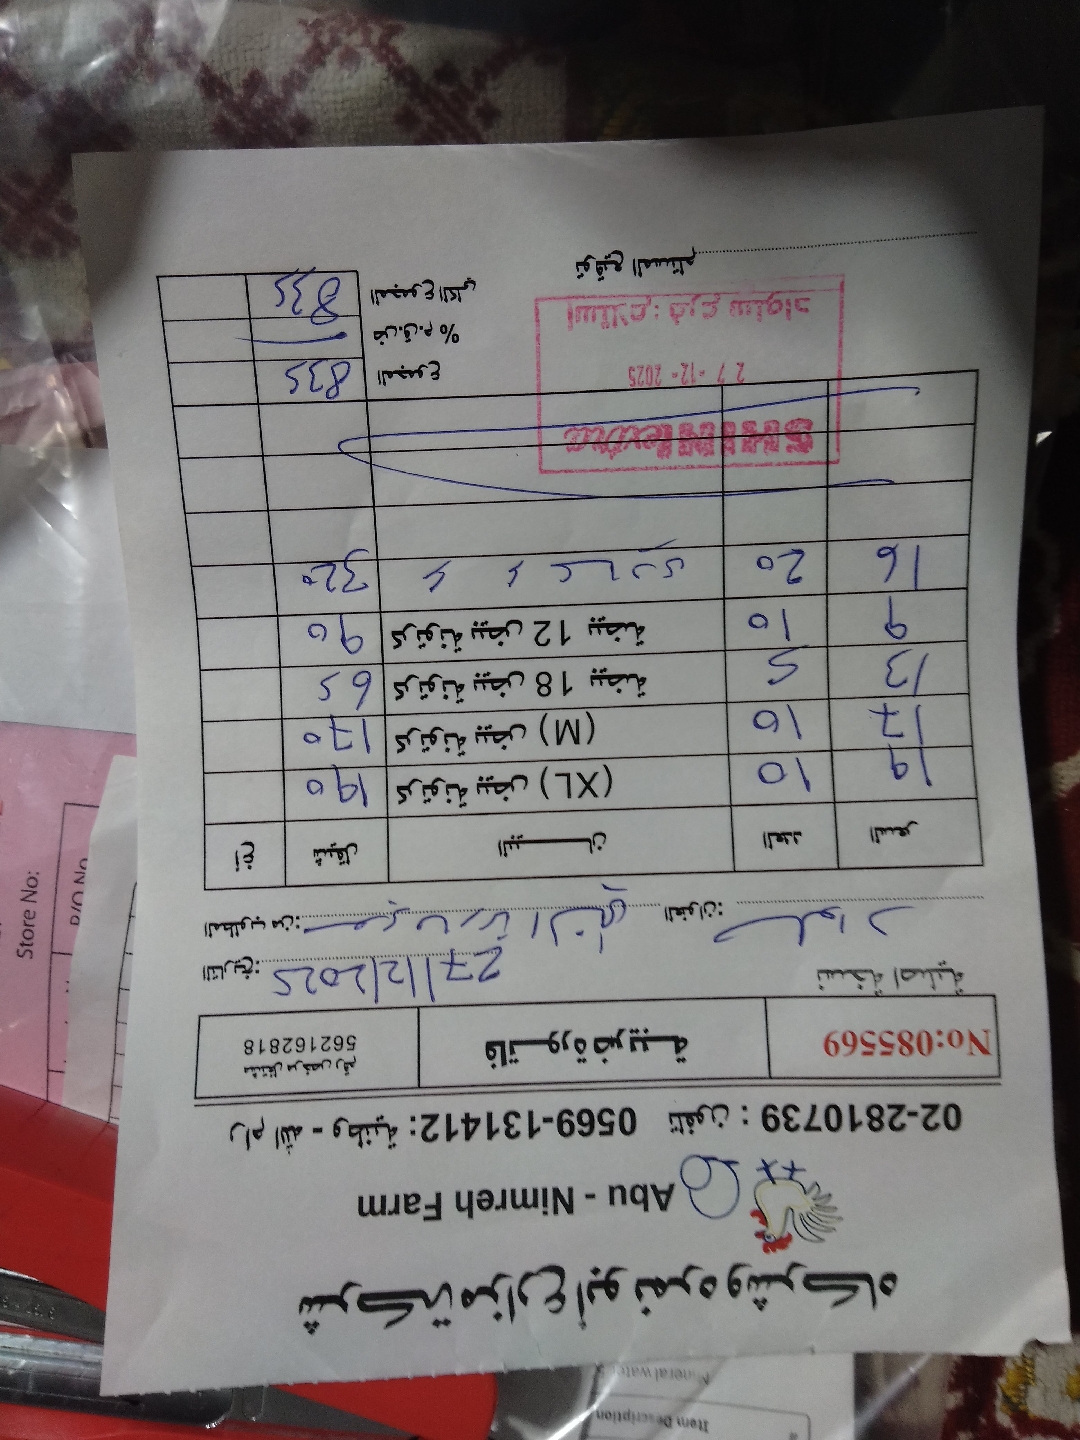 شركة مزارع ابو نمره وشركاه
Abu - Nimreh Farm
رام الله - وطنية: 0569-131412 تلفون: 02-2810739
مشتغل مرخص رقم
562162818
فاتورة ضريبية
No:085569
نسخة اصلية
التاريخ: 27/12/2025
المطلوب من:
العنوان: سلواد
أغ شيقل البيـــان العدد السعر
190 كرتونة بيض (XL) 10 19
170 كرتونة بيض (M) 10 17
65 كرتونة بيض 18 بيضة 5 13
90 كرتونة بيض 12 بيضة 10 9
320 20 16
المجموع 835
ض.ق.م %
المجموع الكلي 835
27-12-2025
استلام: فرع سلواد
توقيع المستلم
Store No:
P/O No
Item Description
Mineral water